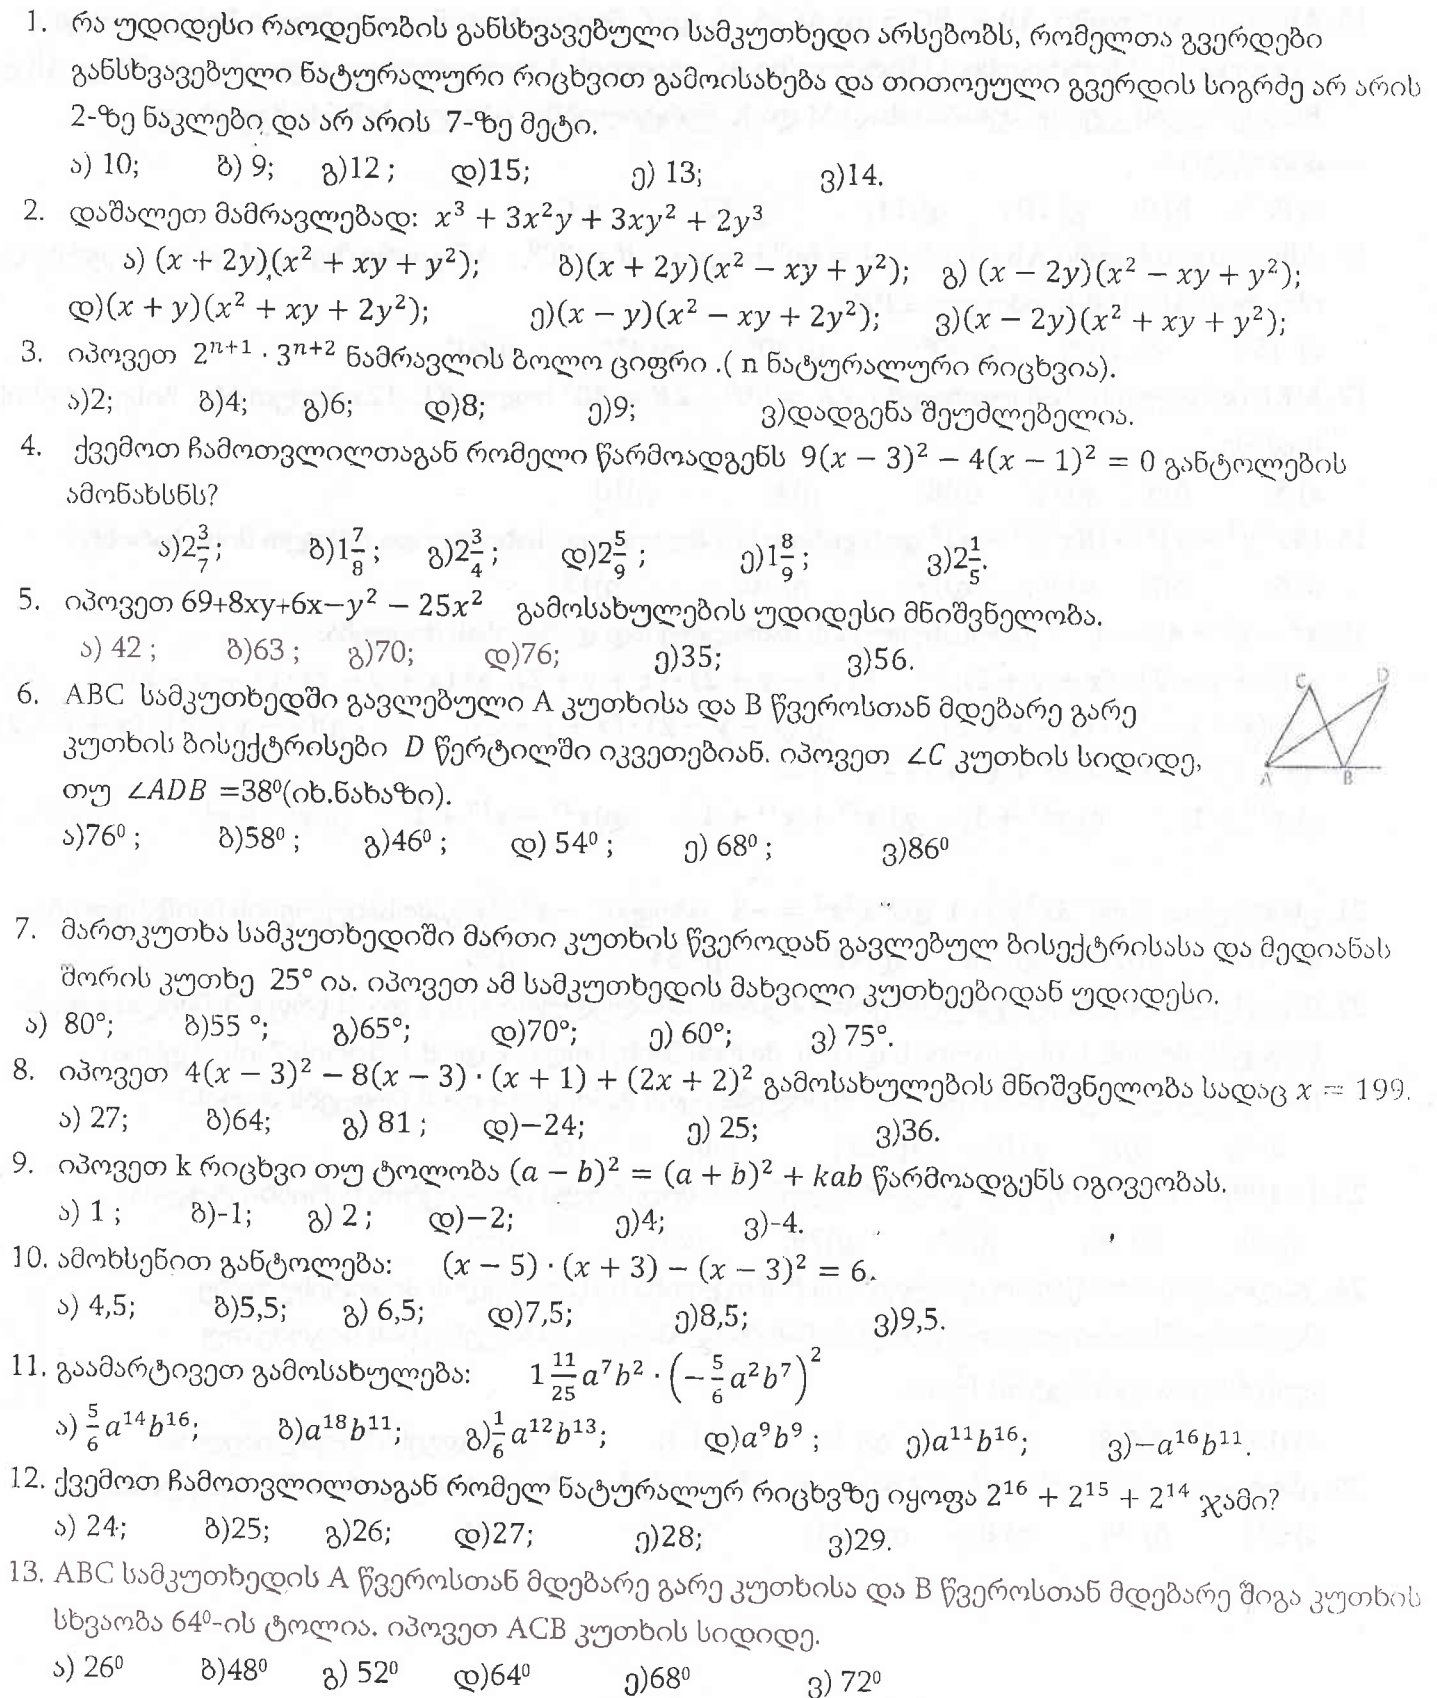 1. რა უდიდესი რაოდენობის განსხვავებული სამკუთხედი არსებობს, რომელთა გვერდები
განსხვავებული ნატურალური რიცხვით გამოისახება და თითოეული გვერდის სიგრძე არ არის
2-ზე ნაკლები და არ არის 7-ზე მეტი.
ა) 10; ბ) 9; გ)12 ; დ)15; ე) 13; ვ)14.
2. დაშალეთ მამრავლებად: x³ + 3x²y + 3xy² + 2y³
ა) (x + 2y)(x² + xy + y²); ბ)(x + 2y)(x² − xy + y²); გ) (x − 2y)(x² − xy + y²);
დ)(x + y)(x² + xy + 2y²); ე)(x − y)(x² − xy + 2y²); ვ)(x − 2y)(x² + xy + y²);
3. იპოვეთ 2ⁿ⁺¹ · 3ⁿ⁺² ნამრავლის ბოლო ციფრი .( n ნატურალური რიცხვია).
ა)2; ბ)4; გ)6; დ)8; ე)9; ვ)დადგენა შეუძლებელია.
4. ქვემოთ ჩამოთვლილთაგან რომელი წარმოადგენს 9(x − 3)² − 4(x − 1)² = 0 განტოლების
ამონახსნს?
ა)2 3/7; ბ)1 7/8; გ)2 3/4; დ)2 5/9; ე)1 8/9; ვ)2 1/5.
5. იპოვეთ 69+8xy+6x−y² − 25x² გამოსახულების უდიდესი მნიშვნელობა.
ა) 42 ; ბ)63 ; გ)70; დ)76; ე)35; ვ)56.
6. ABC სამკუთხედში გავლებული A კუთხისა და B წვეროსთან მდებარე გარე
კუთხის ბისექტრისები D წერტილში იკვეთებიან. იპოვეთ ∠C კუთხის სიდიდე,
თუ ∠ADB =38⁰(იხ.ნახაზი).
C D
A B
ა)76⁰ ; ბ)58⁰ ; გ)46⁰ ; დ) 54⁰ ; ე) 68⁰ ; ვ)86⁰
7. მართკუთხა სამკუთხედიში მართი კუთხის წვეროდან გავლებულ ბისექტრისასა და მედიანას
შორის კუთხე 25° ია. იპოვეთ ამ სამკუთხედის მახვილი კუთხეებიდან უდიდესი.
ა) 80°; ბ)55 °; გ)65°; დ)70°; ე) 60°; ვ) 75°.
8. იპოვეთ 4(x − 3)² − 8(x − 3) · (x + 1) + (2x + 2)² გამოსახულების მნიშვნელობა სადაც x = 199.
ა) 27; ბ)64; გ) 81 ; დ)−24; ე) 25; ვ)36.
9. იპოვეთ k რიცხვი თუ ტოლობა (a − b)² = (a + b)² + kab წარმოადგენს იგივეობას.
ა) 1 ; ბ)-1; გ) 2 ; დ)−2; ე)4; ვ)-4.
10. ამოხსენით განტოლება: (x − 5) · (x + 3) − (x − 3)² = 6.
ა) 4,5; ბ)5,5; გ) 6,5; დ)7,5; ე)8,5; ვ)9,5.
11. გაამარტივეთ გამოსახულება: 1 11/25 a⁷b² · (−5/6 a²b⁷)²
ა) 5/6 a¹⁴b¹⁶; ბ)a¹⁸b¹¹; გ)1/6 a¹²b¹³; დ)a⁹b⁹ ; ე)a¹¹b¹⁶; ვ)−a¹⁶b¹¹.
12. ქვემოთ ჩამოთვლილთაგან რომელ ნატურალურ რიცხვზე იყოფა 2¹⁶ + 2¹⁵ + 2¹⁴ ჯამი?
ა) 24; ბ)25; გ)26; დ)27; ე)28; ვ)29.
13. ABC სამკუთხედის A წვეროსთან მდებარე გარე კუთხისა და B წვეროსთან მდებარე შიგა კუთხის
სხვაობა 64⁰-ის ტოლია. იპოვეთ ACB კუთხის სიდიდე.
ა) 26⁰ ბ)48⁰ გ) 52⁰ დ)64⁰ ე)68⁰ ვ) 72⁰